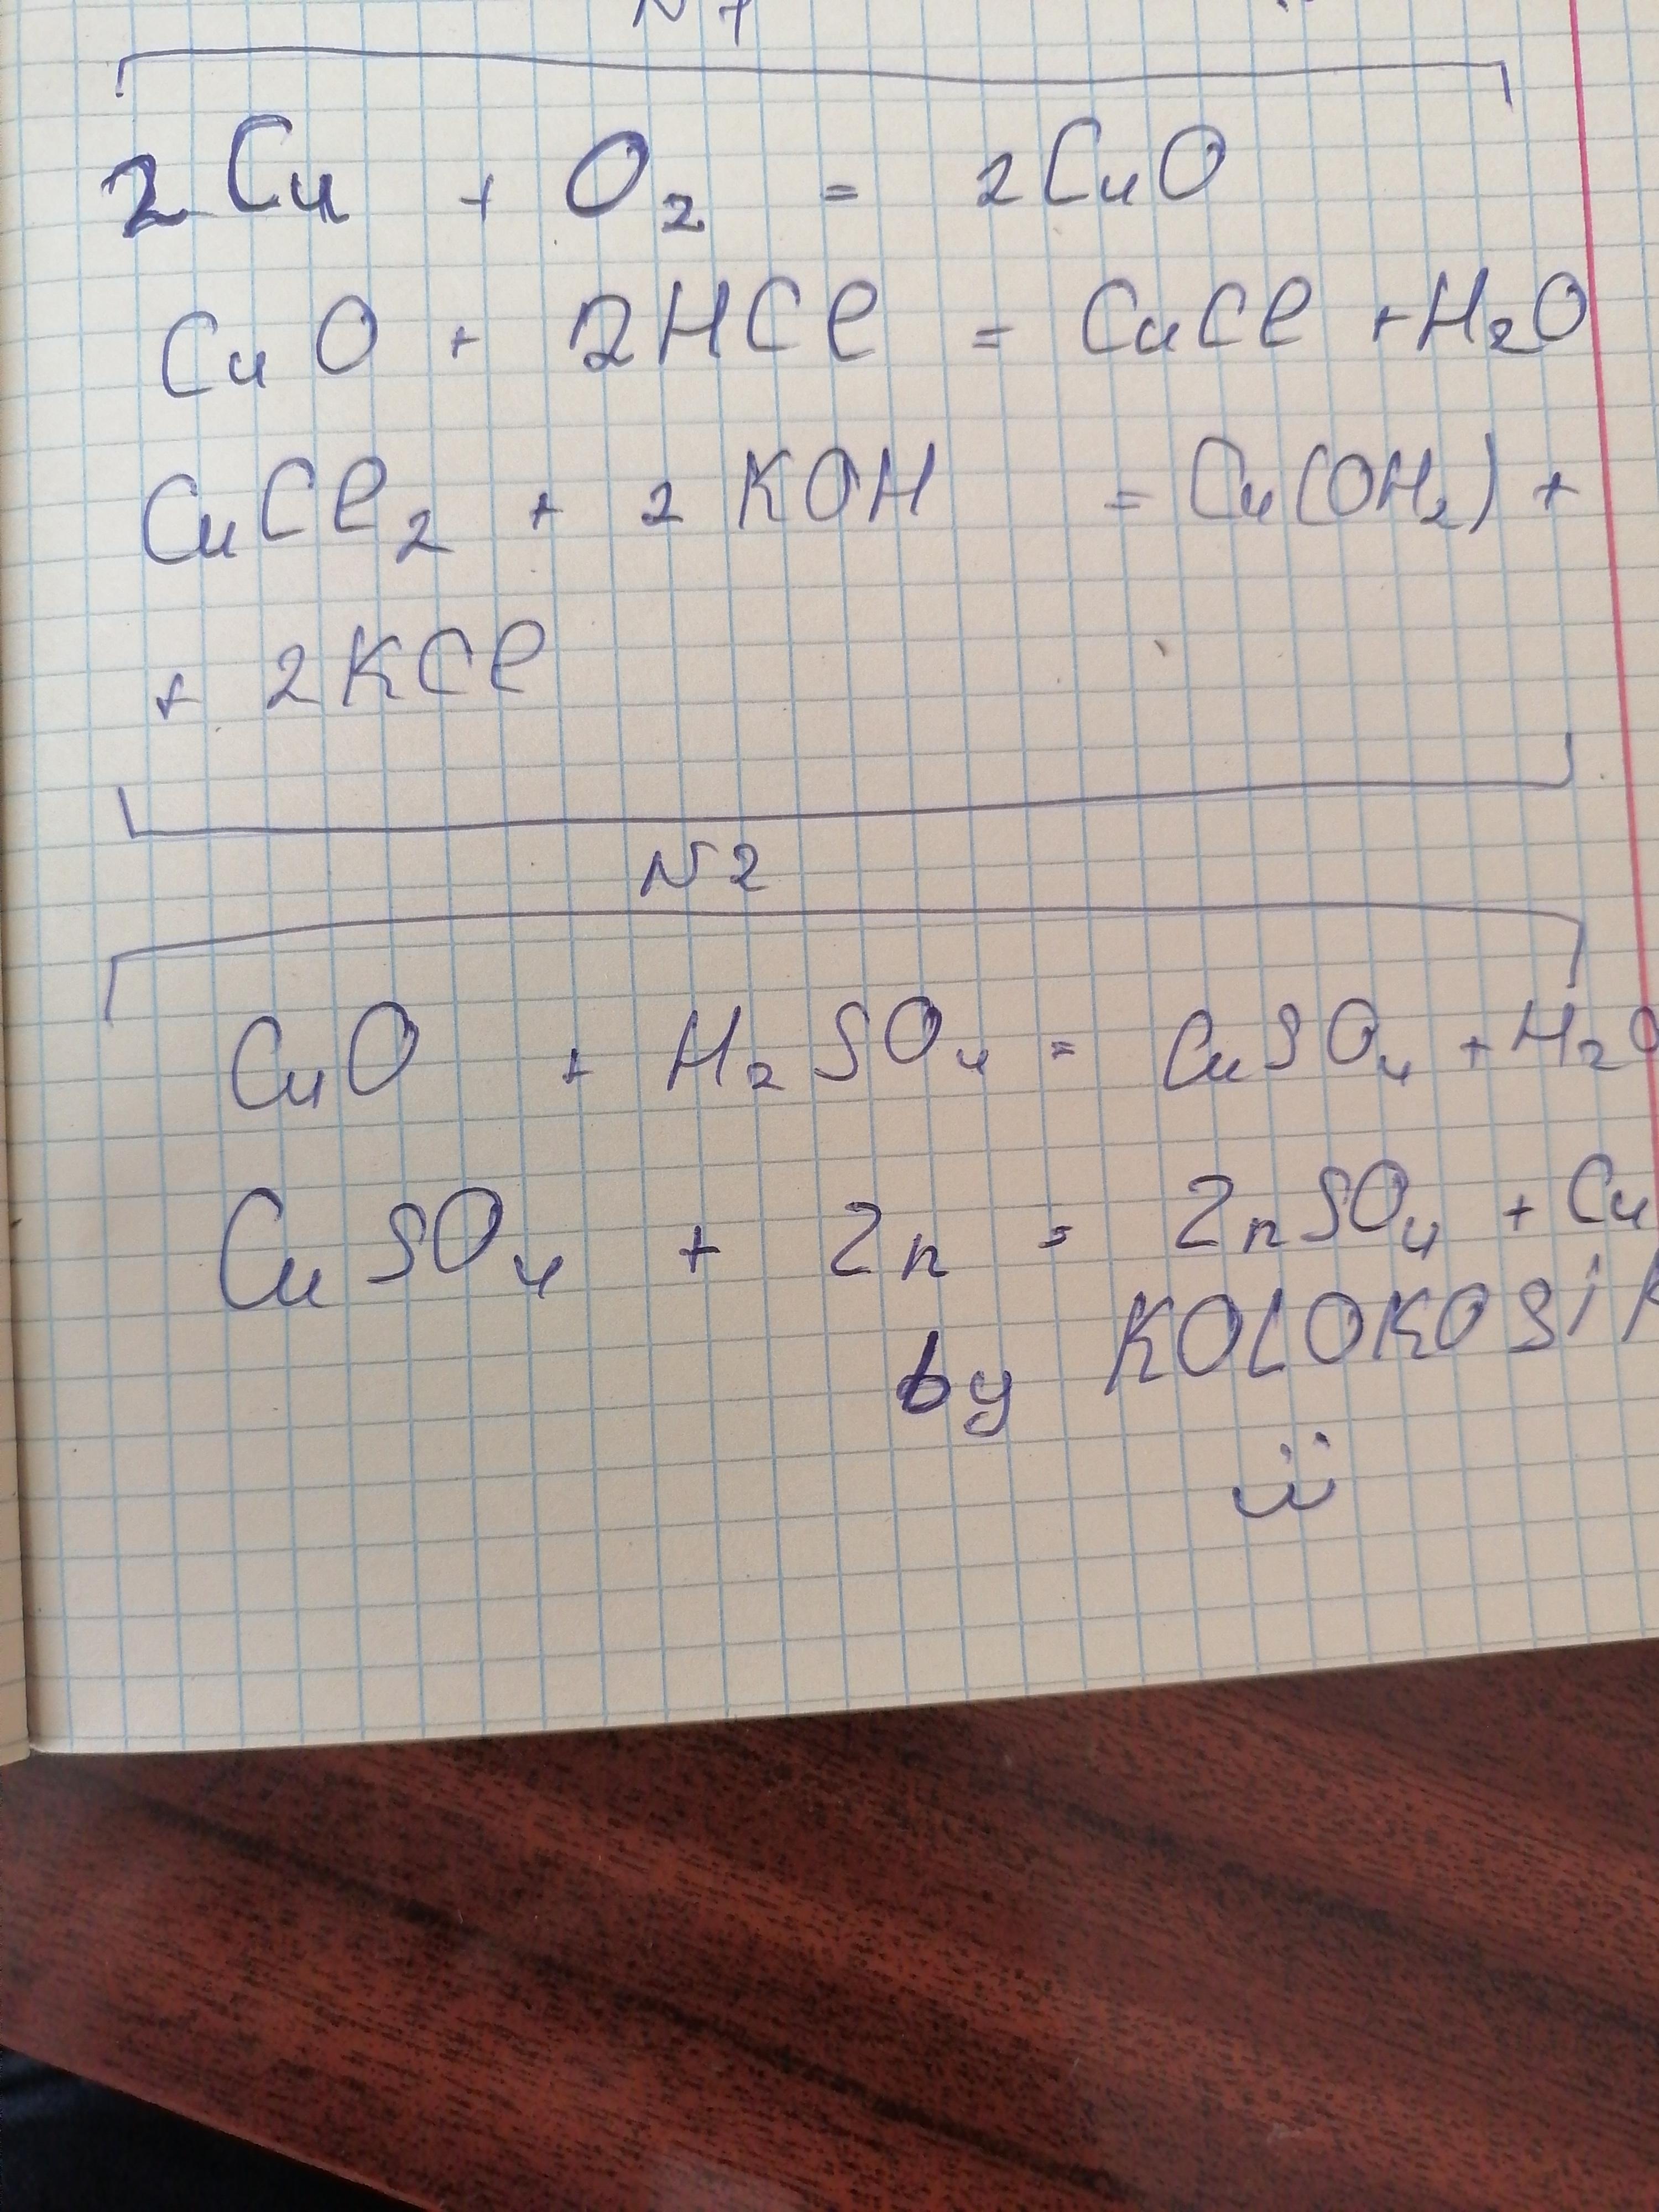 N1
2Cu + O₂ = 2CuO
CuO + 2HCl = CuCl + H₂O
CuCl₂ + 2KOH = Cu(OH₂) +
+ 2KCl
N2
CuO + H₂SO₄ = CuSO₄ + H₂O
CuSO₄ + Zn = ZnSO₄ + Cu
by